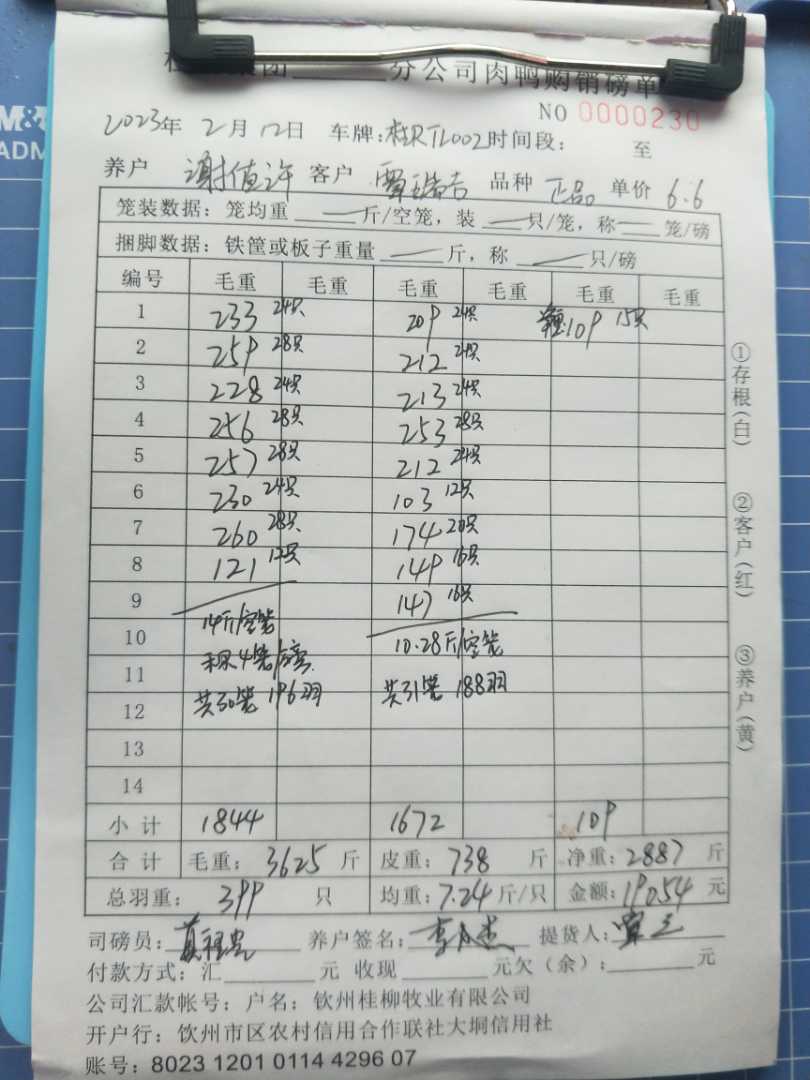 集团______分公司肉鸭购销磅单
NO 0000230
2023年 2月 12日 车牌:桂RTL002 时间段: 至
养户 谢值许 客户 覃瑞吉 品种 正品 单价 6.6
笼装数据: 笼均重 — 斤/空笼, 装 — 只/笼, 称 — 笼/磅
捆脚数据: 铁筐或板子重量 — 斤, 称 — 只/磅
编号 毛重 毛重 毛重 毛重 毛重 毛重
1 233 24只 209 24只 109 15只
2 259 28只 212 24只
3 228 24只 213 24只
4 256 28只 253 28只
5 257 28只 212 24只
6 230 24只 103 12只
7 260 28只 174 20只
8 121 12只 149 16只
9 147 16只
10 14斤/空笼 10.28斤/空笼
11 4笼/磅
12 共50笼 196羽 共31笼 188羽
13
14
小计 1844 1672 109
合计 毛重: 3625 斤 皮重: 738 斤 净重: 2887 斤
总羽重: 399 只 均重: 7.24 斤/只 金额: 19054 元
司磅员: 养户签名: 提货人:
付款方式: 汇______元 收现______元欠(余):______元
公司汇款帐号: 户名: 钦州桂柳牧业有限公司
开户行: 饮州市区农村信用合作联社大垌信用社
账号: 8023 1201 0114 4296 07
①存根(白)
②客户(红)
③养户(黄)
M&
ADM